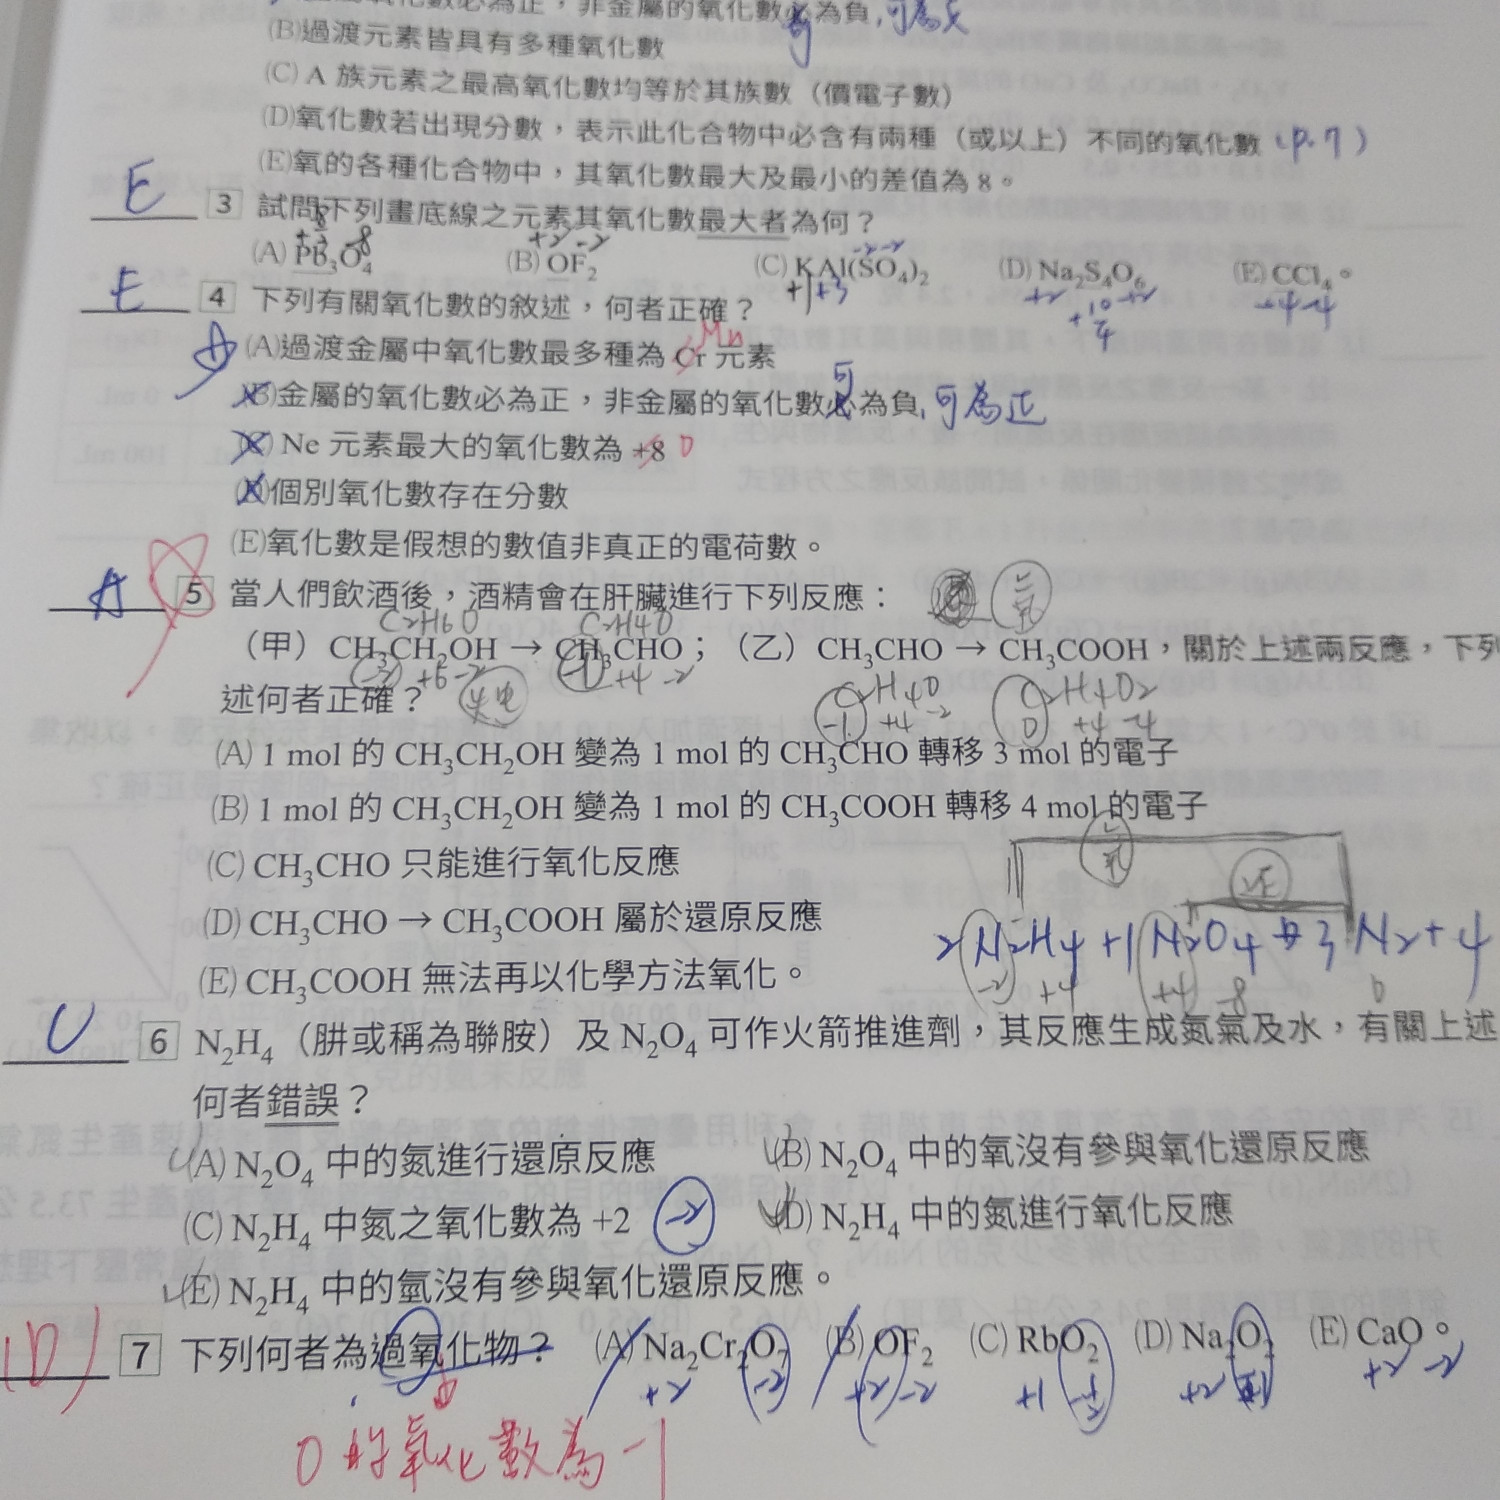 氧化數必為正，非金屬的氧化數必為負，可為正
可
(B)過渡元素皆具有多種氧化數
(C) A 族元素之最高氧化數均等於其族數（價電子數）
(D)氧化數若出現分數，表示此化合物中必含有兩種（或以上）不同的氧化數 (p.7)
(E)氧的各種化合物中，其氧化數最大及最小的差值為 8。
E 3 試問下列畫底線之元素其氧化數最大者為何？
(A) Pb₃O₄ (B) OF₂ (C) KAl(SO₄)₂ (D) Na₂S₄O₆ (E) CCl₄。
E 4 下列有關氧化數的敘述，何者正確？
Mn
(A)過渡金屬中氧化數最多種為 Cr 元素
可
(B)金屬的氧化數必為正，非金屬的氧化數必為負，可為正
(C) Ne 元素最大的氧化數為 +8 0
(D)個別氧化數存在分數
(E)氧化數是假想的數值非真正的電荷數。
A 5 當人們飲酒後，酒精會在肝臟進行下列反應：
C₂H₆O C₂H₄O
（甲）CH₃CH₂OH → CH₃CHO；（乙）CH₃CHO → CH₃COOH，關於上述兩反應，下列
-2 +6 -2 失电 -1 +4 -2
述何者正確？
C₂H₄O C₂H₄O₂
-1 +4 -2 0 +4 -4
(A) 1 mol 的 CH₃CH₂OH 變為 1 mol 的 CH₃CHO 轉移 3 mol 的電子
(B) 1 mol 的 CH₃CH₂OH 變為 1 mol 的 CH₃COOH 轉移 4 mol 的電子
(C) CH₃CHO 只能進行氧化反應
(D) CH₃CHO → CH₃COOH 屬於還原反應
2N₂H₄ + 1N₂O₄ → 3N₂ + 4
-2 +4 +4 -8 0
(E) CH₃COOH 無法再以化學方法氧化。
C 6 N₂H₄（肼或稱為聯胺）及 N₂O₄ 可作火箭推進劑，其反應生成氮氣及水，有關上述
何者錯誤？
(A) N₂O₄ 中的氮進行還原反應 (B) N₂O₄ 中的氧沒有參與氧化還原反應
(C) N₂H₄ 中氮之氧化數為 +2 -2 (D) N₂H₄ 中的氮進行氧化反應
(E) N₂H₄ 中的氫沒有參與氧化還原反應。
(D) 7 下列何者為過氧化物？ (A) Na₂Cr₂O₇ (B) OF₂ (C) RbO₂ (D) Na₂O₂ (E) CaO。
O 的氧化數為 -1